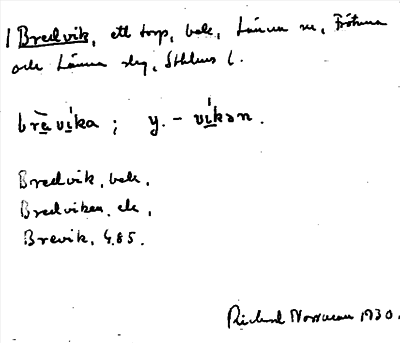 1 Bredvik, ett torp, bek, Länna sn, Frötuna
och Länna slg, Sthlms l.
brèvíka ; y. - víkən.
Bredvik, bek,
Bredviken, ek,
Brevik, G.85.
Richard Norrman 1930.